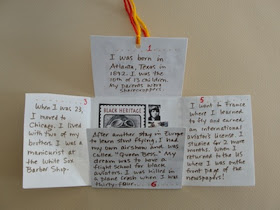 1
I was born in
Atlanta, Texas in
1892. I was the
10th of 13 children.
My parents were
sharecroppers.
3
When I was 23,
I moved to
Chicago. I lived
with two of my
brothers. I was a
manicurist at
the White Sox
Barber Shop.
BLACK HERITAGE
5
I went to France
where I learned
to fly and earned
an international
aviators license. I
studied for 2 more
months. When I
returned to the US
I was front
page of the
newspapers!
After another stay in Europe
to learn stunt flying, I had
my own airshows and was
called "Queen Bess." My
dream was to have a
flight school for black
aviators. I was killed in
a plane crash when I was
thirty-four.
6